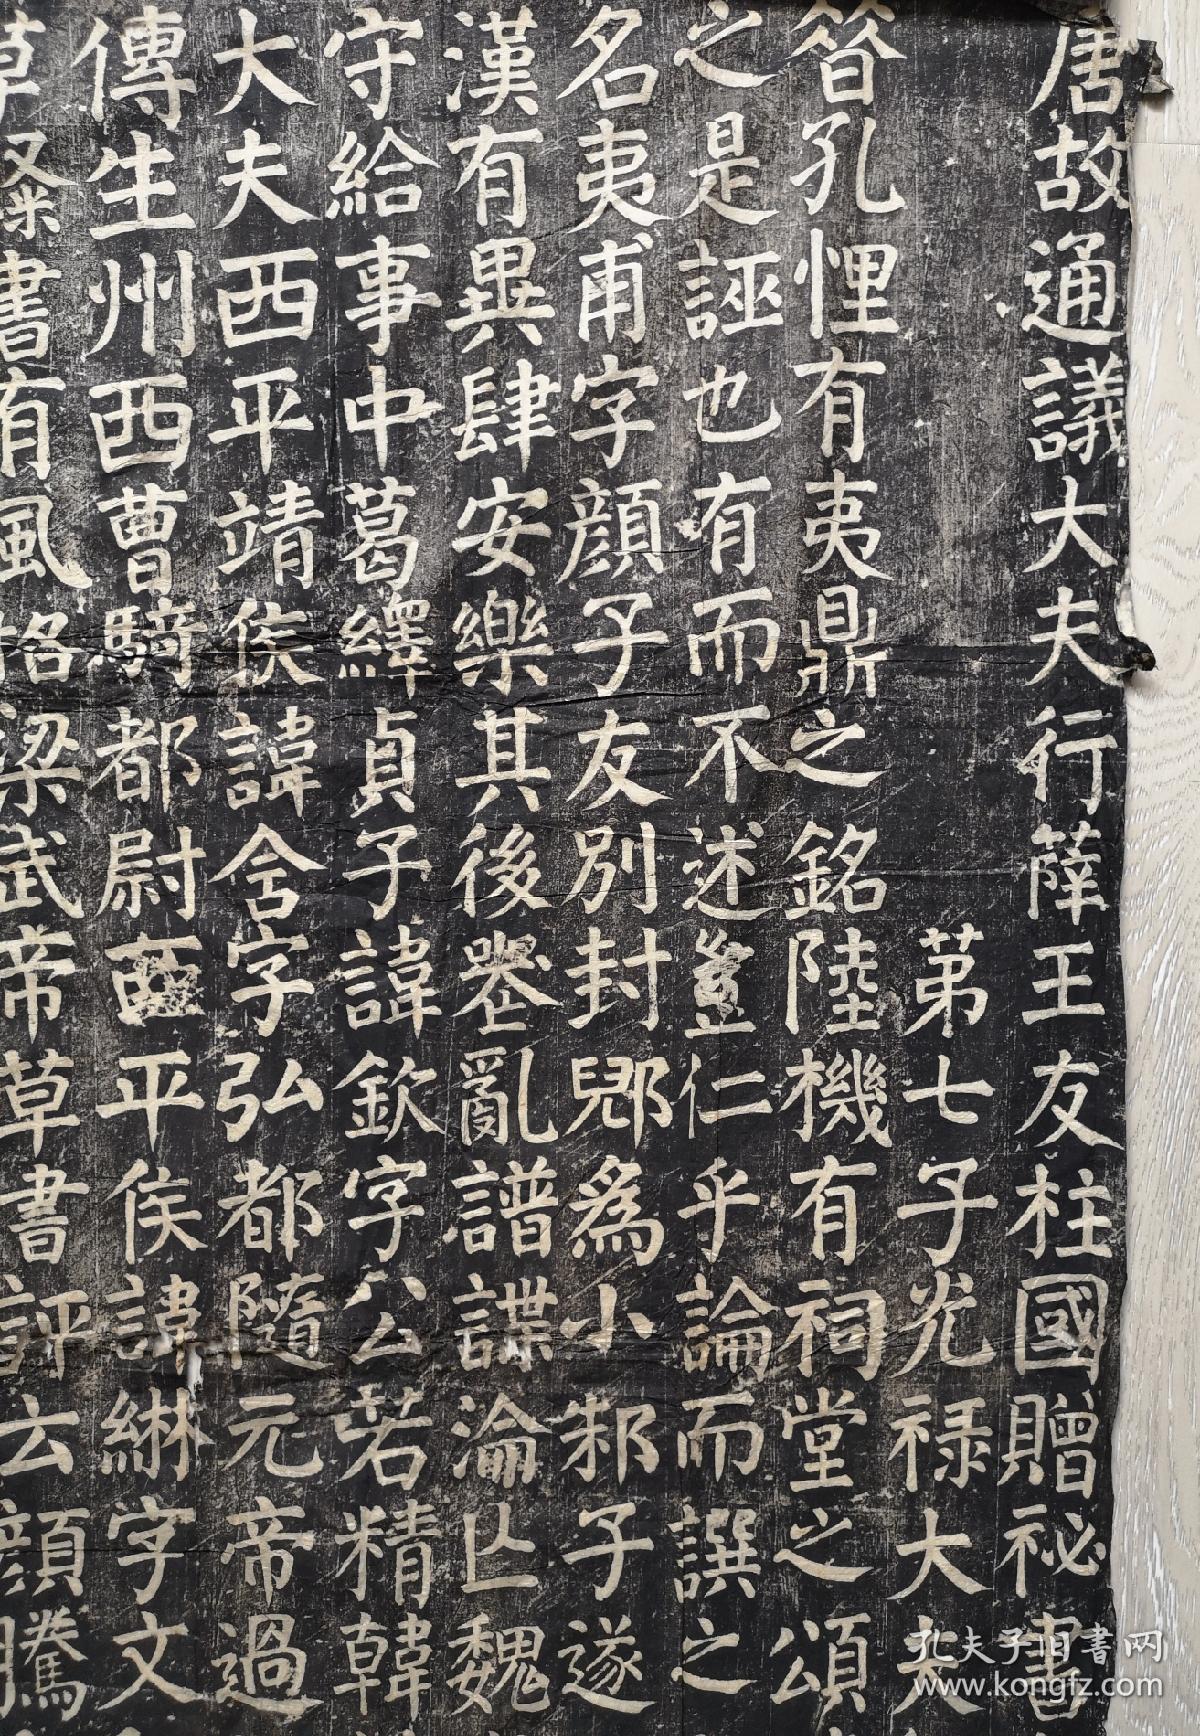 唐故通議大夫行薛王友柱國贈祕書
第七子光禄大夫
昝孔悝有夷鼎之銘陸機有祠堂之頌
之是誣也有而不述豈仁乎論而譔之
名夷甫字顔子友別封郳爲小邾子遂
漢有異肆安樂其後喪亂譜諜淪亾魏
守給事中葛繹貞子諱欽字公若精韓
大夫西平靖侯諱含字弘都隨元帝過
傳生州西曹騎都尉西平侯諱綝字文
草隸書有風格梁武帝草書評云顔騰
孔夫子旧书网
www.kongfz.com